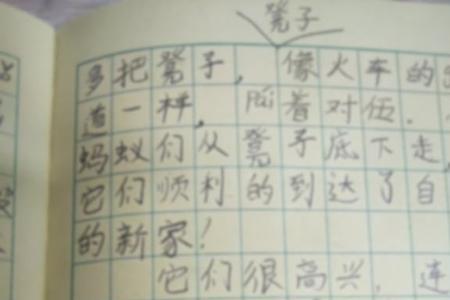 凳子
多把凳子，像火车的
道一样，pái着对伍.
蚂蚁们从凳子底下走，
它们顺利的到达了自
的新家！
它们很高兴，连